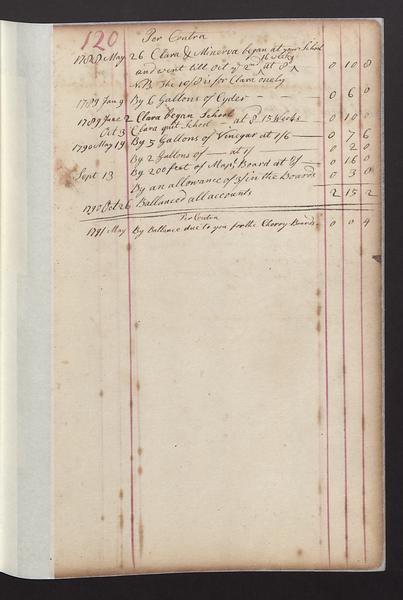 120 Per Contra
1788 May 26 Clara & Minerva began at your School
and went till Oct ye 2nd 16 weeks at 8 0 10 8
NB The 10/8 is for Clara onely
1789 Jan 9 By 6 Gallons of Cyder - 0 6 0
1789 June 2 Clara began School
Oct 3 Clara quit School - at 8 15 Weeks 0 10 0
1790 May 19 By 5 Gallons of Vinegar at 1/6 0 7 6
By 2 Gallons of at 1/ 0 2 0
Sept 13 By 200 feet of Mapl Board at 8/ 0 16 0
By an allowance of 3/ in the Boards 0 3 0
1790 Oct 26 Ballanced all accounts 2 15 2
Per Contra
1791 May By Ballance due to you for the Cherry Boards 0 0 4